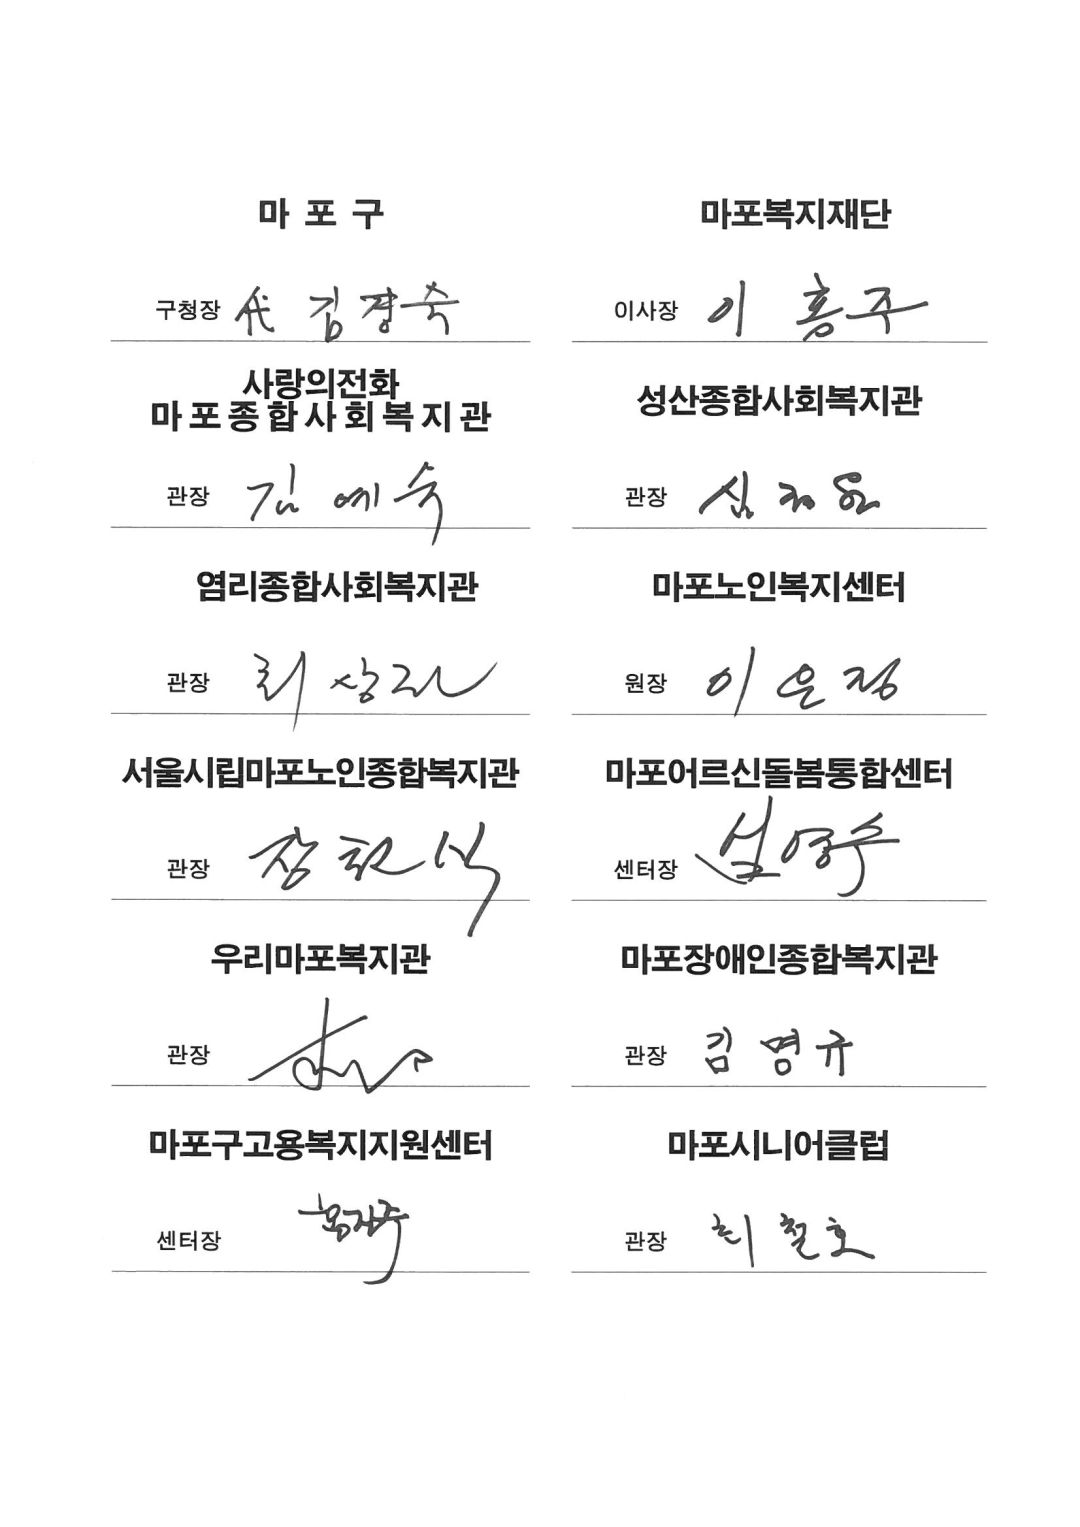 마 포 구
구청장 代 김경숙
마포복지재단
이사장 이 홍주
사랑의전화
마포종합사회복지관
관장 김예숙
성산종합사회복지관
관장
염리종합사회복지관
관장 최상진
마포노인복지센터
원장 이은정
서울시립마포노인종합복지관
관장
마포어르신돌봄통합센터
센터장
우리마포복지관
관장
마포장애인종합복지관
관장 김명규
마포구고용복지지원센터
센터장
마포시니어클럽
관장 최철호